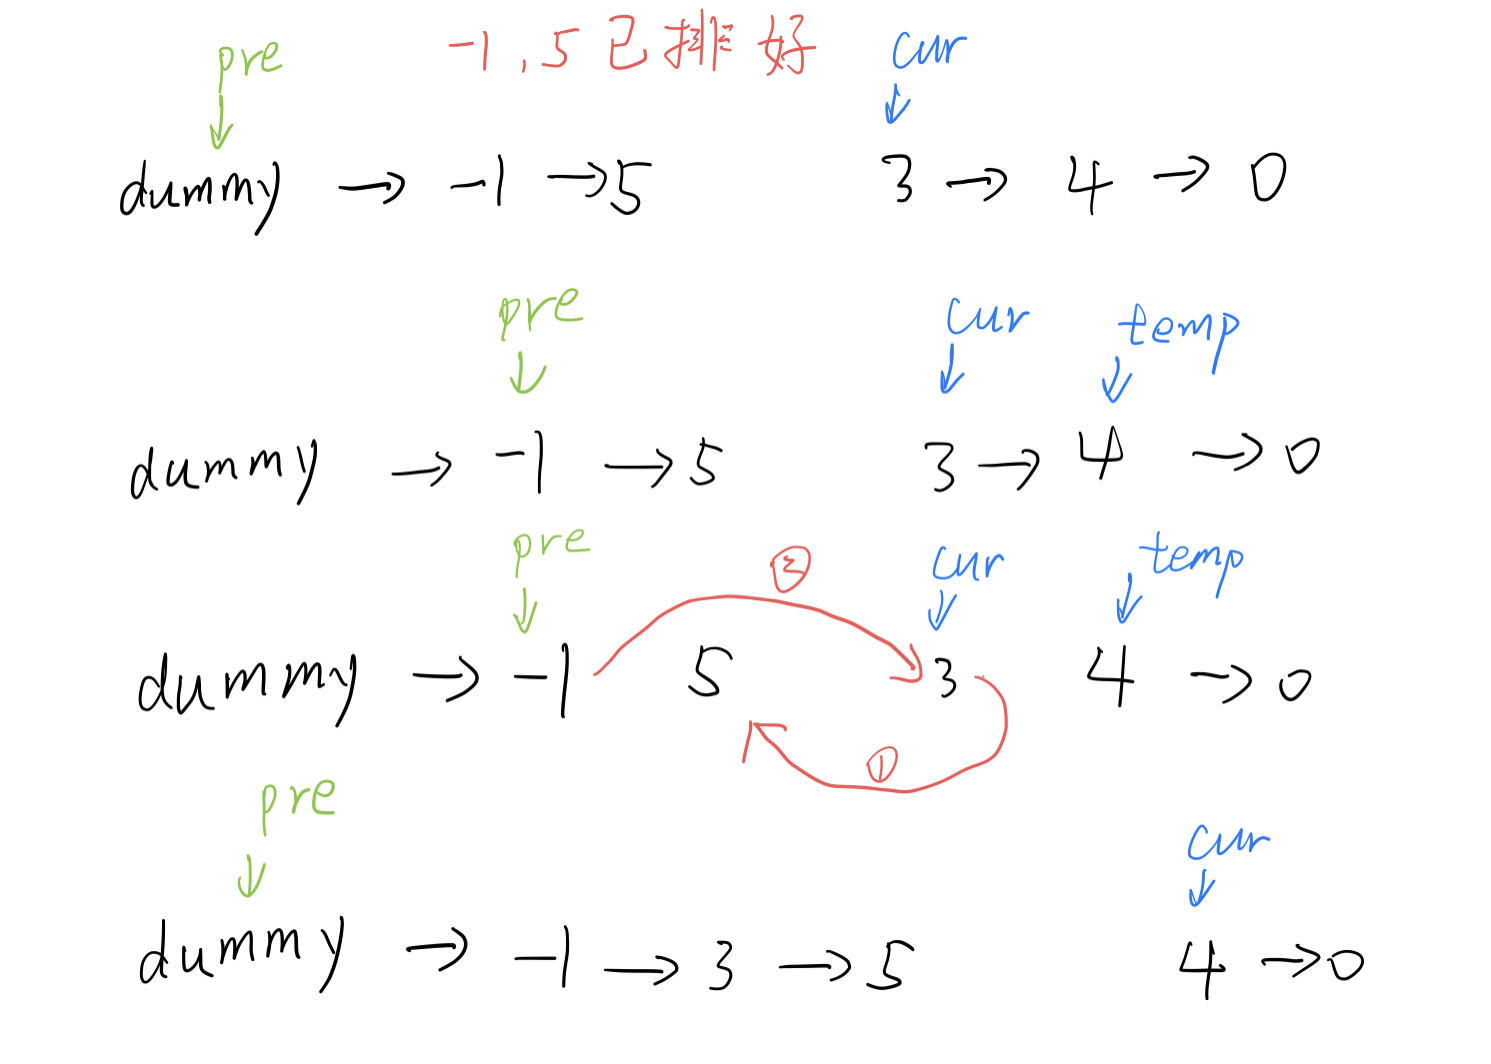 pre -1,5已排好 cur
dummy → -1 → 5 3 → 4 → 0
pre cur temp
dummy → -1 → 5 3 → 4 → 0
pre ② cur temp
dummy → -1 5 3 4 → 0
①
pre cur
dummy → -1 → 3 → 5 4 → 0